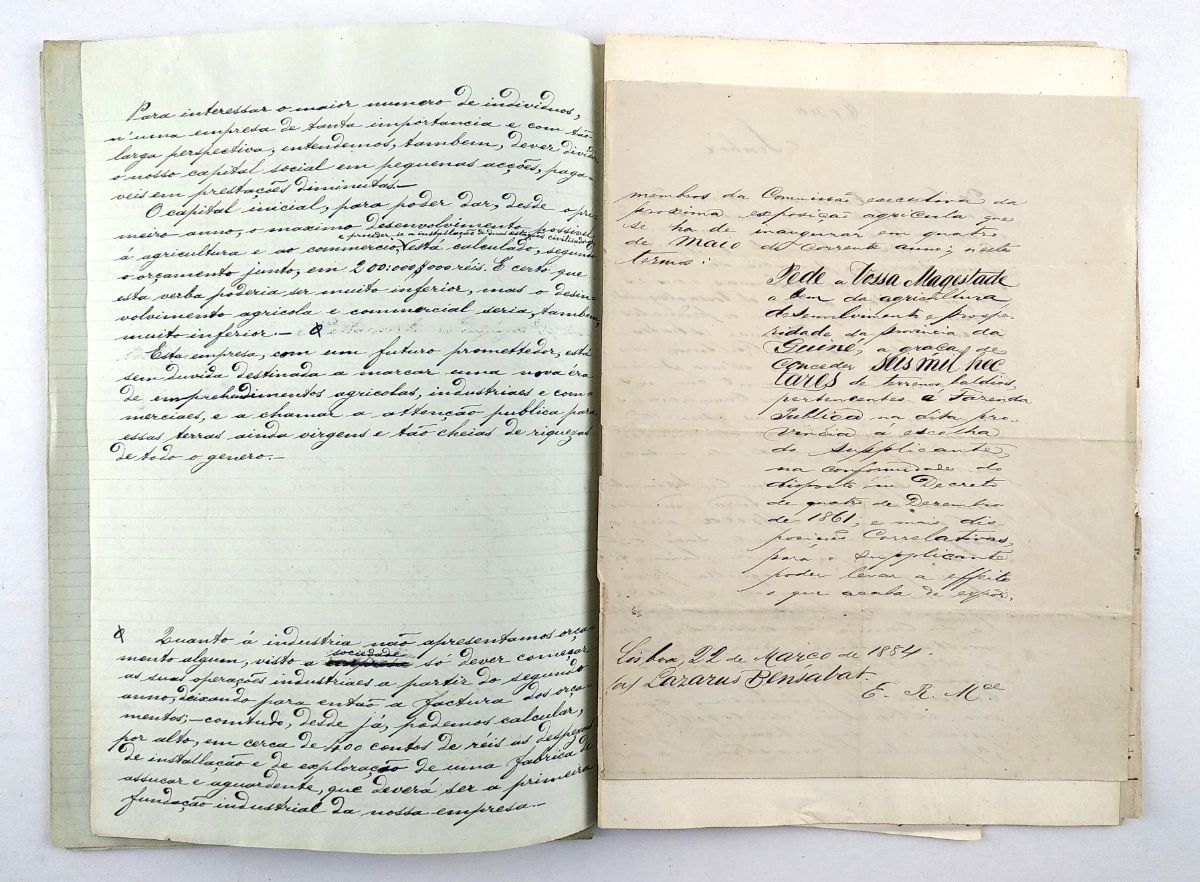 Para interessar o maior numero de individuos,
n'uma empresa de tanta importancia e com tão
larga perspectiva, entendemos, tambem, dever dividir
o nosso capital social em pequenas acções, paga-
veis em prestações diminutas.—
O capital inicial, para poder dar, desde o pri-
meiro anno, o maximo desenvolvimento possivel
á agricultura e ao commercio, e proceder-se a installação de duas estações civilisadoras está calculado, segundo
o orçamento junto, em 200:000$000 réis. É certo que
esta verba poderia ser muito inferior, mas o desin-
volvimento agricola e commercial seria, tambem,
muito inferior.—
Esta empresa, com um futuro promettedor, está
sem duvida destinada a marcar uma nova éra
de emprehendimentos agricolas, industriaes e com-
merciaes, e a chamar a attenção publica para
essas terras ainda virgens e tão cheias de riquezas
de todo o genero.—
Quanto á industria não apresentamos orça-
mento algum, visto a sociedade só dever começar
as suas operações industriaes a partir do segundo
anno, deixando para então a factura dos orça-
mentos;—comtudo, desde já, podemos calcular,
por alto, em cerca de 400 contos de réis as despezas
de installação e de exploração de uma fabrica de
assucar e aguardente, que deverá ser a primeira
fundação industrial da nossa empresa.—
membros da Commissão executiva da
proxima exposição agricula que
se ha de inaugurar em quatro
de Maio do corrente anno; n'estes
termos:
Pede a Vossa Magestade
a bem da agricultura,
desenvolvimento e prospe-
ridade da provincia da
Guiné, a graça de
conceder seis mil hec
tares de terrenos baldios,
pertencentes a Fazenda
Publica na dita pro-
vincia á escolha
do supplicante,
na conformidade do
disposto em Decreto
de quatro de Dezembro
de 1861, e mais dis-
posições Correlativas,
para o supplicante
poder levar a effeito
o que acaba de expôr.
Lisboa, 22 de Março de 1884.
(a) Lazarus Bensabat.
E. R. M.ce